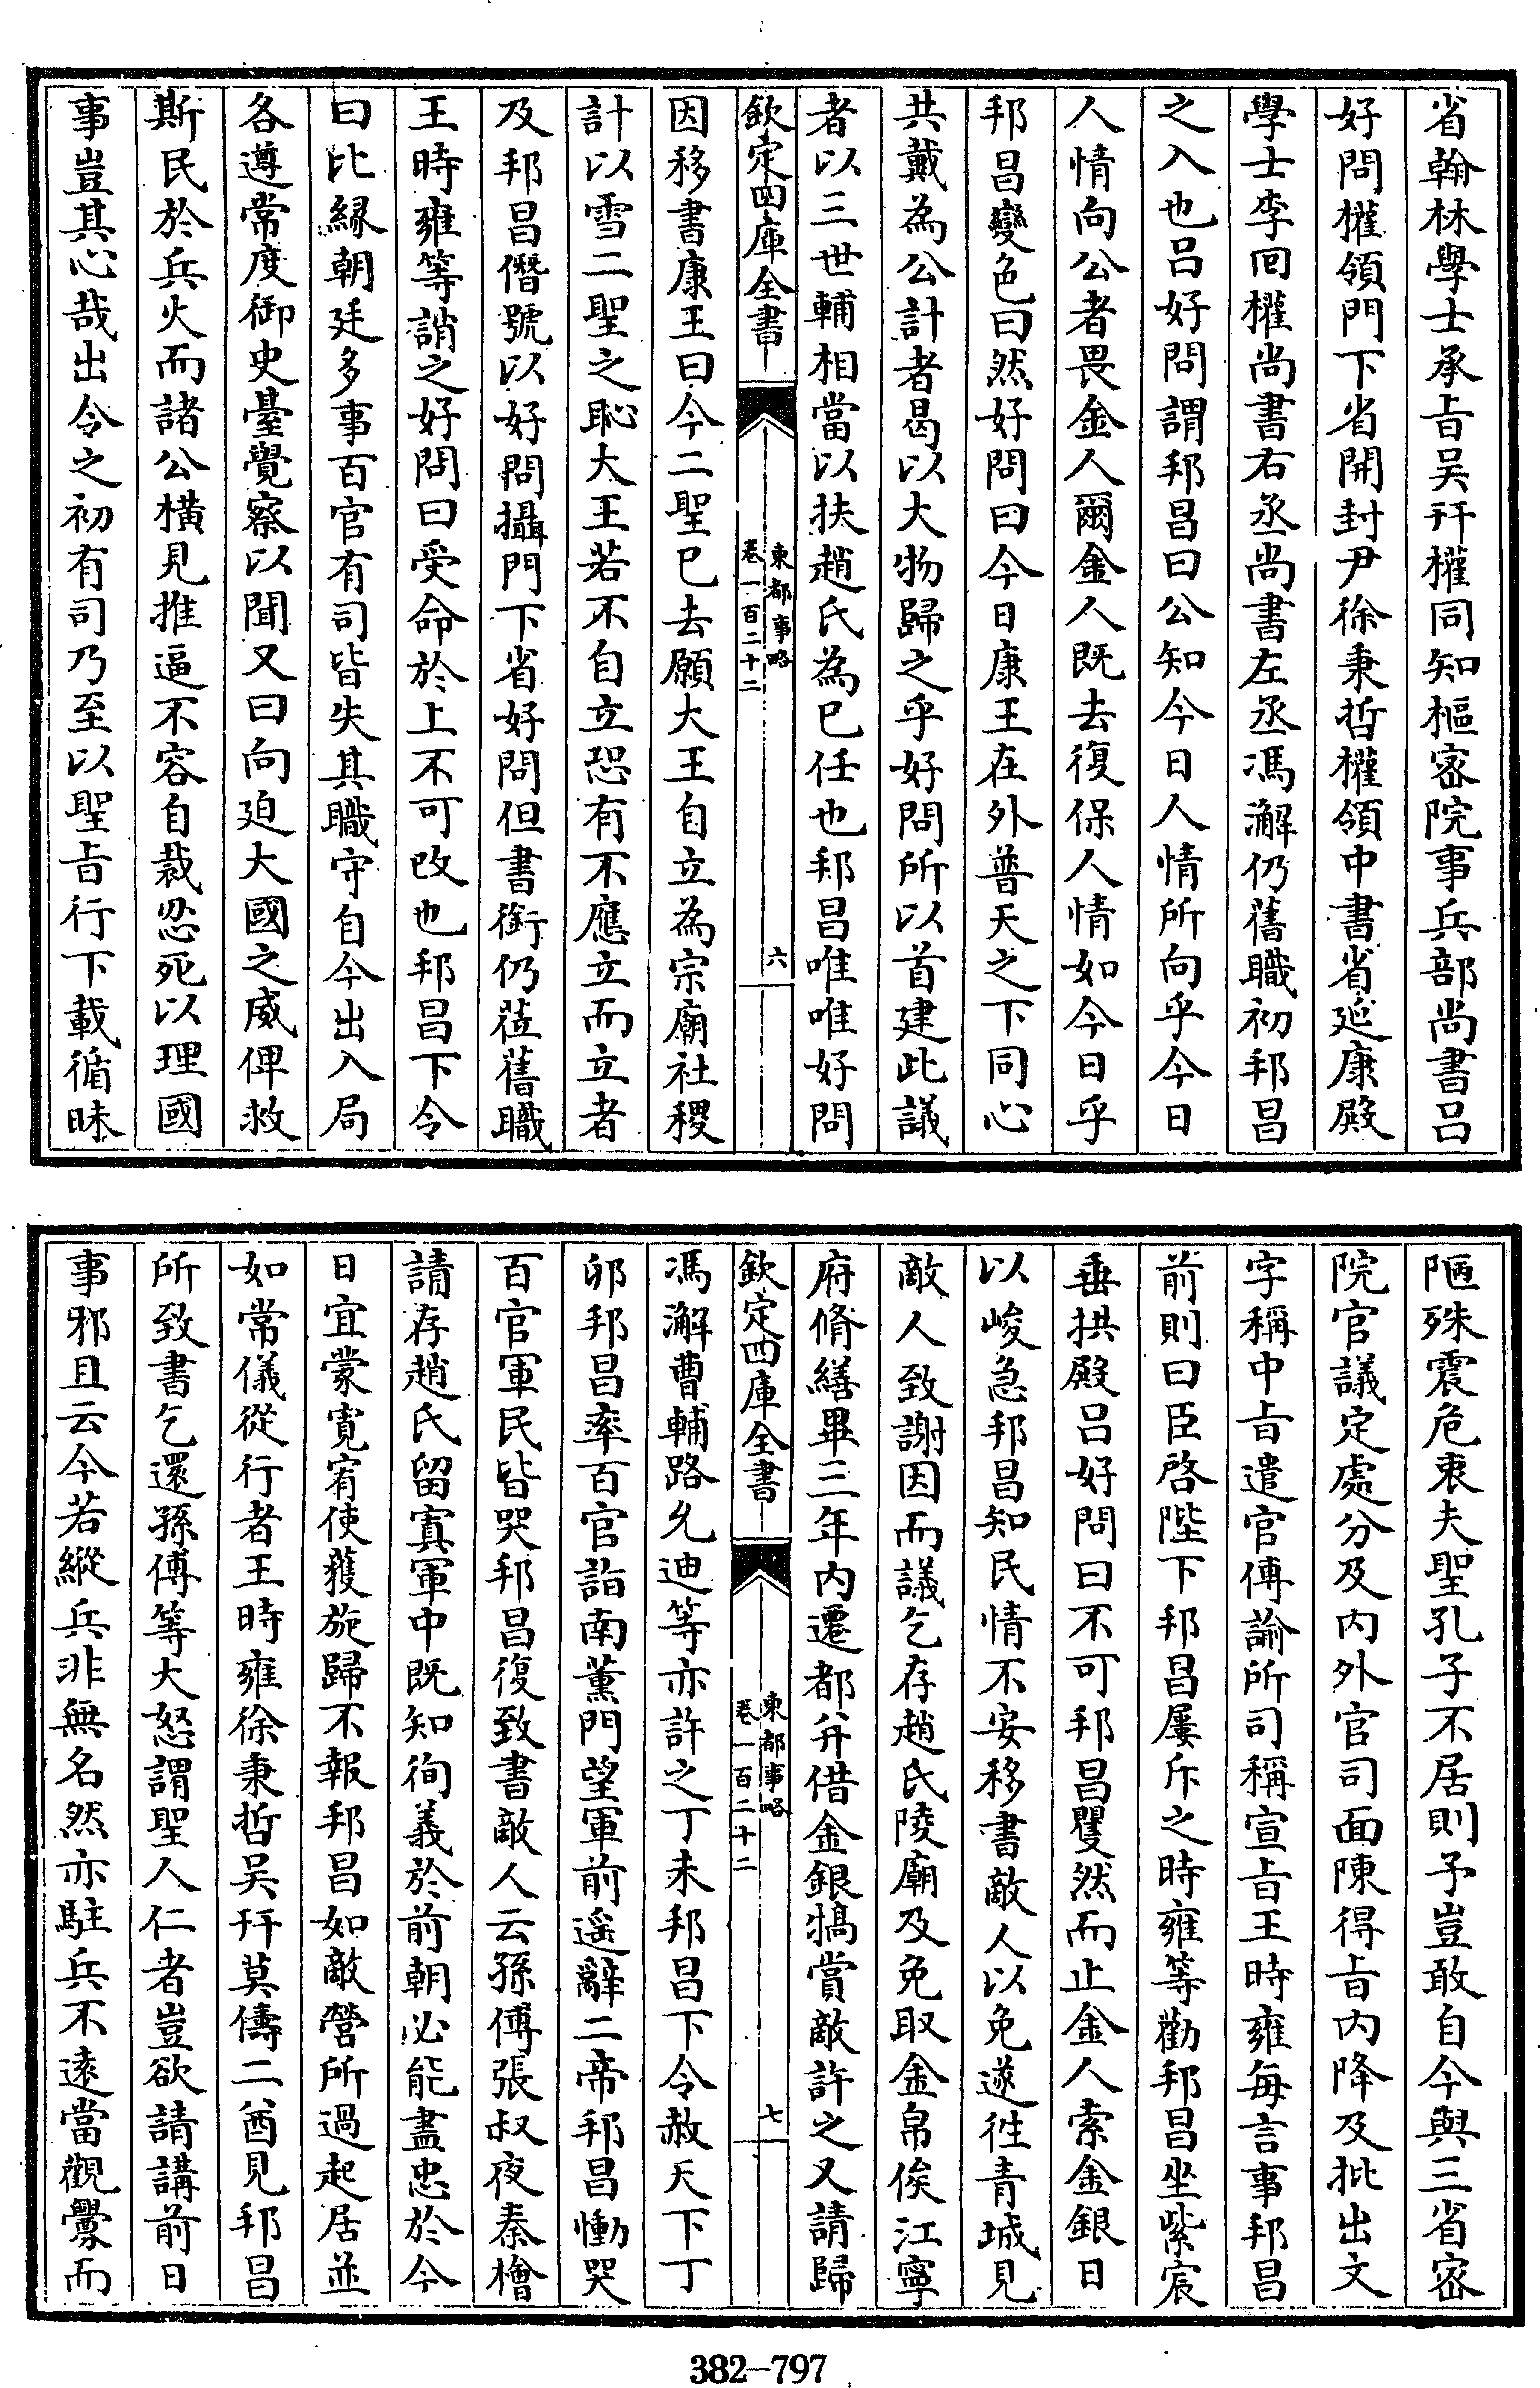 省翰林學士承㫖吴幵權同知樞宻院事兵部尚書吕
好問權領門下省開封尹徐秉哲權領中書省延康殿
學士李回權尚書右丞尚書左丞馮澥仍舊職初邦昌
之入也吕好問謂邦昌曰公知今日人情所向乎今日
人情向公者畏金人爾金人既去復保人情如今日乎
邦昌變色曰然好問曰今日康王在外普天之下同心
共戴為公計者曷以大物歸之乎好問所以首建此議
者以三世輔相當以扶趙氏為已任也邦昌唯唯好問
欽定四庫全書
東都事略
卷一百二十二
六
因移書康王曰今二聖已去願大王自立為宗廟社稷
計以雪二聖之恥大王若不自立恐有不應立而立者
及邦昌僭號以好問攝門下省好問但書銜仍莅舊職
王時雍等誚之好問曰受命於上不可改也邦昌下令
曰比縁朝廷多事百官有司皆失其職守自今出入局
各遵常度御史臺覺察以聞又曰向廹大國之威俾救
斯民於兵火而諸公横見推逼不容自裁忍死以理國
事豈其心哉出令之初有司乃至以聖㫖行下載循昧
陋殊震危衷夫聖孔子不居則予豈敢自今與三省宻
院官議定處分及内外官司面陳得㫖内降及批出文
字稱中㫖遣官傳諭所司稱宣㫖王時雍每言事邦昌
前則曰臣啓陛下邦昌屢斥之時雍等勸邦昌坐紫宸
垂拱殿吕好問曰不可邦昌矍然而止金人索金銀日
以峻急邦昌知民情不安移書敵人以免遂徃青城見
敵人致謝因而議乞存趙氏陵廟及免取金帛俟江寧
府脩繕畢三年内遷都并借金銀犒賞敵許之又請歸
欽定四庫全書
東都事略
卷一百二十二
七
馮澥曹輔路允迪等亦許之丁未邦昌下令赦天下丁
夘邦昌率百官詣南薰門望軍前遥辭二帝邦昌慟哭
百官軍民皆哭邦昌復致書敵人云孫傅張叔夜秦檜
請存趙氏留寘軍中既知徇義於前朝必能盡忠於今
日宜蒙寛宥使獲旋歸不報邦昌如敵營所過起居並
如常儀從行者王時雍徐秉哲吴幵莫儔二酋見邦昌
所致書乞還孫傅等大怒謂聖人仁者豈欲請講前日
事邪且云今若縱兵非無名然亦駐兵不逺當觀釁而
382-797